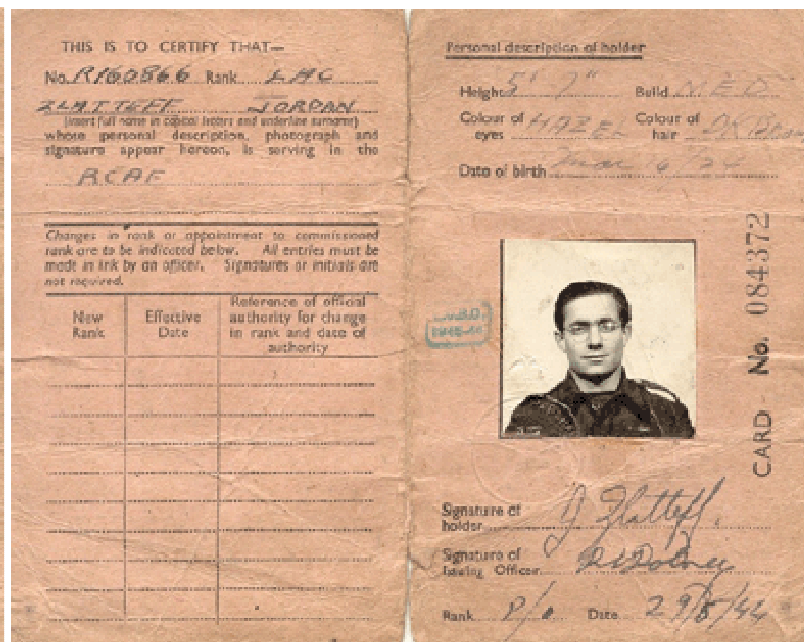 THIS IS TO CERTIFY THAT—
No. R160866 Rank LAC
ZLATTEFF JORDAN
(Insert full name in capital letters and underline surname)
whose personal description, photograph and
signature appear hereon, is serving in the
RCAF
Changes in rank or appointment to commissioned
rank are to be indicated below. All entries must be
made in ink by an officer. Signatures or initials are
not required.
New Rank
Effective Date
Reference of official authority for change in rank and date of authority
Personal description of holder
Height 5' 7" Build MED
Colour of eyes HAZEL Colour of hair DK
Date of birth Mar 16/24
CARD No. 084372
Signature of holder J Zlatteff.
Signature of Issuing Officer
Rank P/o Date 29/5/44